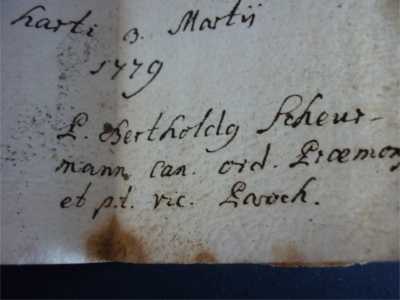 harti 3. Martij
1779
P. Bertholdg Scheur-
mann can. ord. Præmon
et p.t. vic. Paroch.